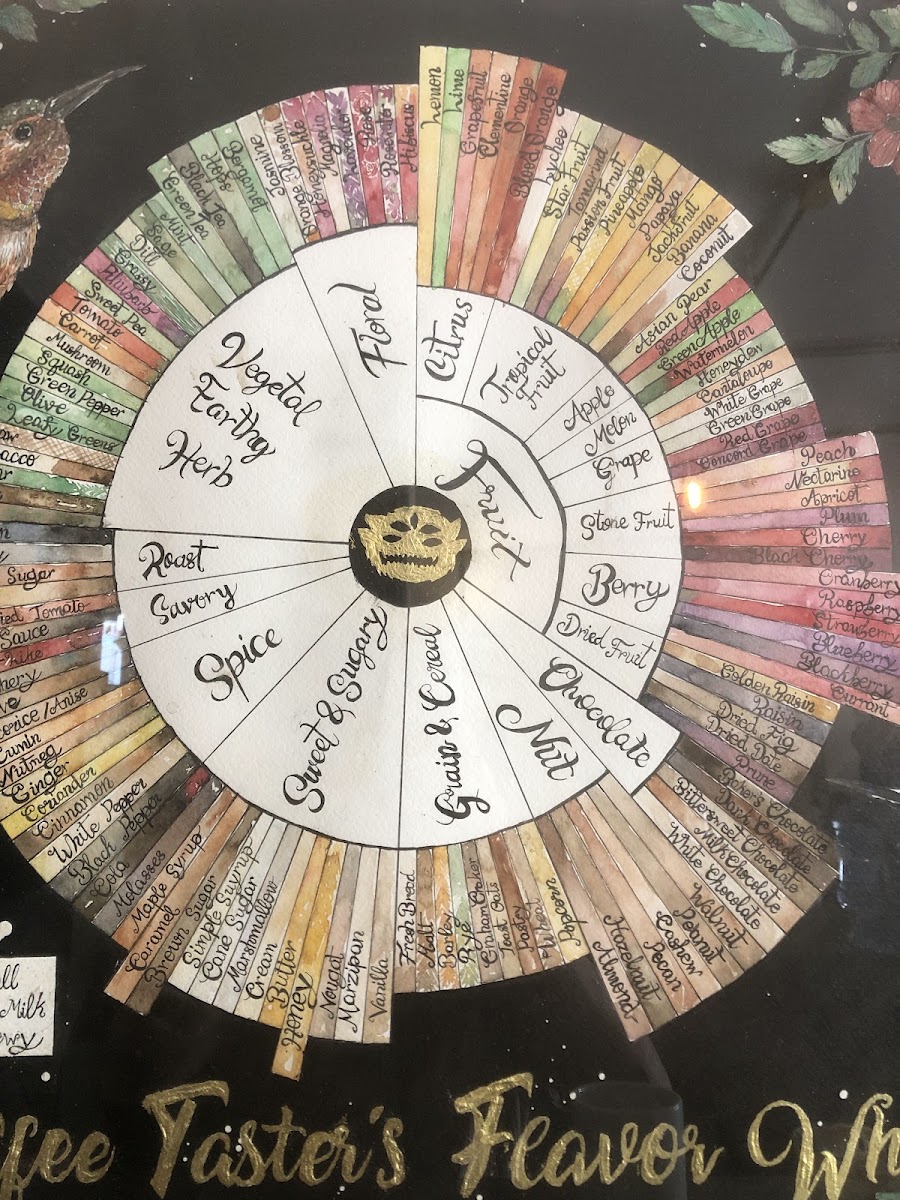 Lemon
Lime
Grapefruit
Clementine
Orange
Blood Orange
Lychee
Star Fruit
Tamarind
Passion Fruit
Pineapple
Mango
Papaya
Jackfruit
Banana
Coconut
Asian Pear
Red Apple
Green Apple
Watermelon
Honeydew
Cantaloupe
White Grape
Green Grape
Red Grape
Concord Grape
Peach
Nectarine
Apricot
Plum
Cherry
Black Cherry
Cranberry
Raspberry
Strawberry
Blueberry
Blackberry
Currant
Golden Raisin
Raisin
Dried Fig
Dried Date
Prune
Baker's Chocolate
Dark Chocolate
Bittersweet Chocolate
Milk Chocolate
White Chocolate
Walnut
Peanut
Cashew
Pecan
Hazelnut
Almond
Wheat
Pastry
Toast
Graham Cracker
Rye
Barley
Malt
Fresh Bread
Vanilla
Marzipan
Nougat
Honey
Butter
Cream
Marshmallow
Cane Sugar
Simple Syrup
Brown Sugar
Caramel
Maple Syrup
Molasses
Cola
Black Pepper
White Pepper
Cinnamon
Coriander
Ginger
Nutmeg
Cumin
orice/Anise
ied Tomato
Sauce
Sugar
acco
Leafy Greens
Olive
Green Pepper
Squash
Mushroom
Carrot
Tomato
Sweet Pea
Grassy
Dill
Sage
Mint
Green Tea
Black Tea
Hops
Bergamot
Jasmine
Orange Blossom
Honeysuckle
Magnolia
Lavender
Rose
Hibiscus
Floral
Citrus
Tropical
Fruit
Apple
Melon
Grape
Stone Fruit
Berry
Dried Fruit
Fruit
Chocolate
Nut
Grain & Cereal
Sweet & Sugary
Spice
Savory
Roast
Vegetal
Earthy
Herb
ll
Milk
ewy
fee Taster's Flavor Wh